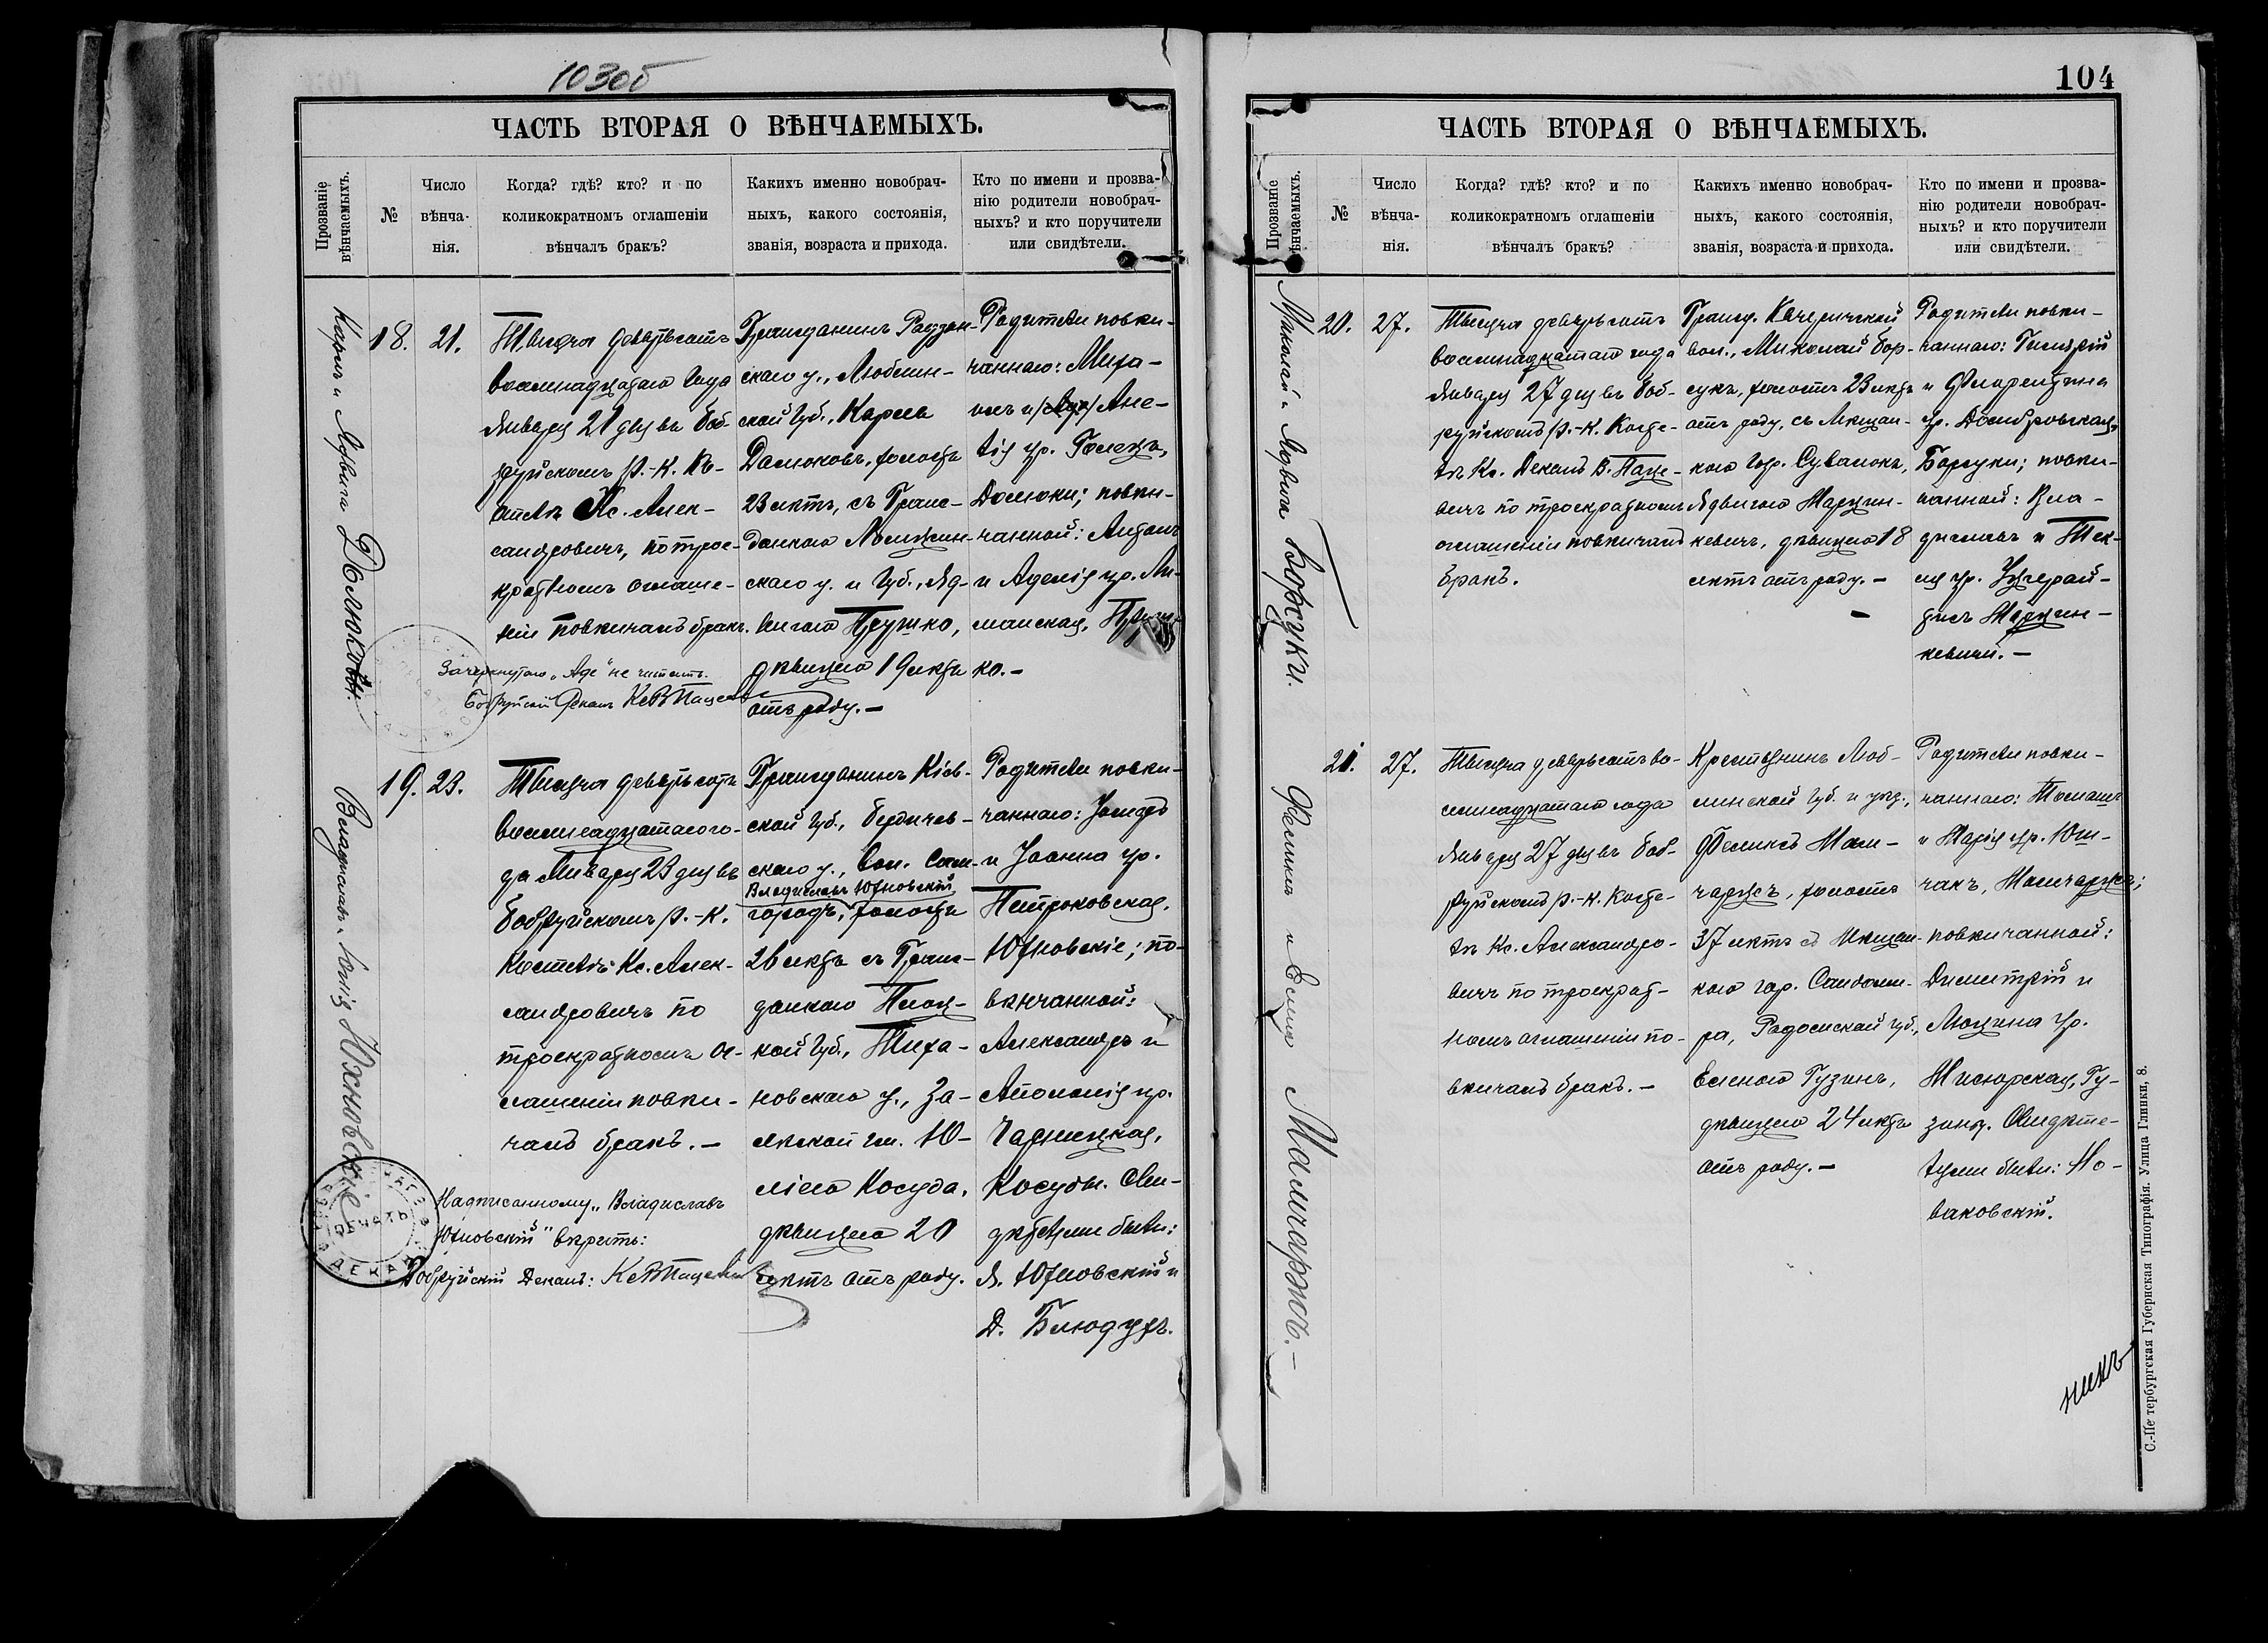 103об
ЧАСТЬ ВТОРАЯ О ВѢНЧАЕМЫХЪ.
Прозваніе вѣнчаемыхъ.
№
Число
вѣнча-
нія.
Когда? гдѣ? кто? и по
коликократномъ оглашеніи
вѣнчалъ бракъ?
Какихъ именно новобрач-
ныхъ, какого состоянія,
званія, возраста и прихода.
Кто по имени и прозва-
нію родители новобрач-
ныхъ? и кто поручители
или свидѣтели.
Карлъ и Ядвига Долюковы.
18.
21.
Тысяча девятьсотъ
восемнадцатаго года
Января 21 дня въ Боб-
руйскомъ р.-к. Ко-
стелѣ Кс. Алек-
сандровичъ, по трое-
кратномъ оглаше-
ніи повѣнчалъ бракъ.
Зачеркнутаго „Аде" не читать.
Бобруйскій Деканъ
Гражданинъ
скаго у., Люблин-
ской Губ., Карла
Долюковъ, холостъ
23 лѣтъ, съ Граж-
данкою
скаго у. и Губ., Яд-
вигою Прушко,
дѣвицею 19 лѣтъ
отъ роду. –
Родители повѣн-
чаннаго: Миха-
илъ и (Аде) Ане-
ля ур. Голецъ,
Долюки; повѣн-
чанной: Антонъ
и Аделія ур.
манская,
ко. –
Владиславъ и Юлія Юхновскіе
19.
23.
Тысяча девятьсотъ
восемнадцатаго го-
да Января 23 дня въ
Бобруйскомъ р.-к.
Костелѣ Кс. Алек-
сандровичъ по
троекратномъ ог-
лашеніи повѣн-
чалъ бракъ. –
Надписанному „Владиславъ
Юхновскій" вѣрить:
Бобруйскій Деканъ:
Гражданинъ Кіев-
ской Губ., Бердичев-
скаго у., Вол. Сам-
Владиславъ Юхновскій,
городъ, холостъ
26 лѣтъ съ Граж-
данкою Плоц-
кой Губ.,
новскаго у., За-
лѣской гм. Ю-
ліею Косуда,
дѣвицею 20
лѣтъ отъ роду.
Родители повѣн-
чаннаго: Іосифъ
и Іоанна ур.
Петроковская,
Юхновскіе; по-
вѣнчанной:
Александръ и
Аполонія ур.
Чарнецкая,
Косуды. Сви-
дѣтели были:
Я. Юхновскій и
Д. Блюдухъ.
104
ЧАСТЬ ВТОРАЯ О ВѢНЧАЕМЫХЪ.
Прозваніе вѣнчаемыхъ.
№
Число
вѣнча-
нія.
Когда? гдѣ? кто? и по
коликократномъ оглашеніи
вѣнчалъ бракъ?
Какихъ именно новобрач-
ныхъ, какого состоянія,
званія, возраста и прихода.
Кто по имени и прозва-
нію родители новобрач-
ныхъ? и кто поручители
или свидѣтели.
Миколай и Ядвига Борсуки.
20.
27.
Тысяча девятьсотъ
восемнадцатаго года
Января 27 дня въ Боб-
руйскомъ р.-к. Косте-
лѣ Кс. Деканъ В. Паце-
вичъ по троекратномъ
оглашеніи повѣнчалъ
бракъ.
Гражд. Качеричской
вол., Миколай Бор-
сукъ, холостъ 23 лѣтъ
отъ роду, съ Мѣщан-
кою Гор. Сувалокъ,
Ядвигою Марцин-
кевичъ, дѣвицею 18
лѣтъ отъ роду. –
Родители повѣн-
чаннаго: Гилярій
и Флорентина
ур. Домбровская,
Борсуки; повѣн-
чанной: Вла-
диславъ и Тек-
ля ур.
Марцин-
кевичи. –
Феликсъ и Елена Мамчаржъ. –
21.
27.
Тысяча девятьсотъ во-
семнадцатаго года
Января 27 дня въ Боб-
руйскомъ р.-к. Косте-
лѣ Кс. Александро-
вичъ по троекрат-
номъ оглашеніи по-
вѣнчалъ бракъ. –
Крестянинъ Люб-
линской Губ. и уѣзд.,
Феликсъ Мам-
чаржъ, холостъ
37 лѣтъ съ Мѣщан-
кою гор. Сандоми-
ра, Радомской Губ.,
Еленою Гузинъ,
дѣвицею 24 лѣтъ
отъ роду. –
Родители повѣн-
чаннаго: Томашъ
и Марія ур. Юш-
чакъ, Мамчаржъ;
повѣнчанной:
Димитрій и
Люцина ур.
Гу-
зины. Свидѣте-
лями были: Но-
ваковскій.
С.-Петербургская Губернская Типографія. Улица Глинки, 8.